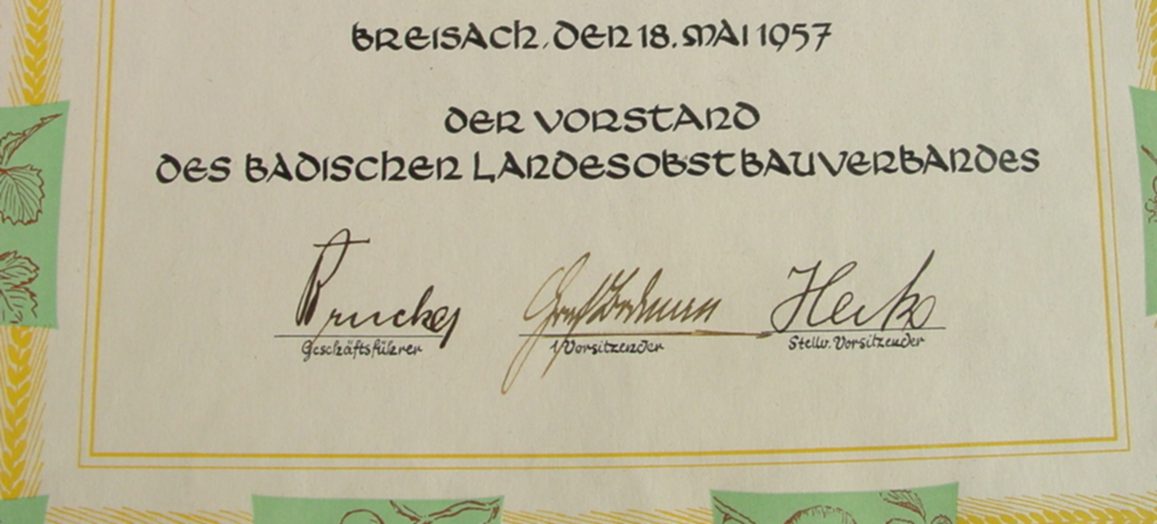 BREISACH, DEN 18. MAI 1957
DER VORSTAND
DES BADISCHEN LANDESOBSTBAUVERBANDES
Geschäftsführer 1. Vorsitzender Stellv. Vorsitzender